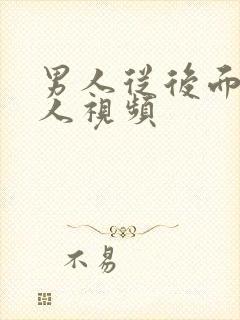 男人從後而
人視頻
不易